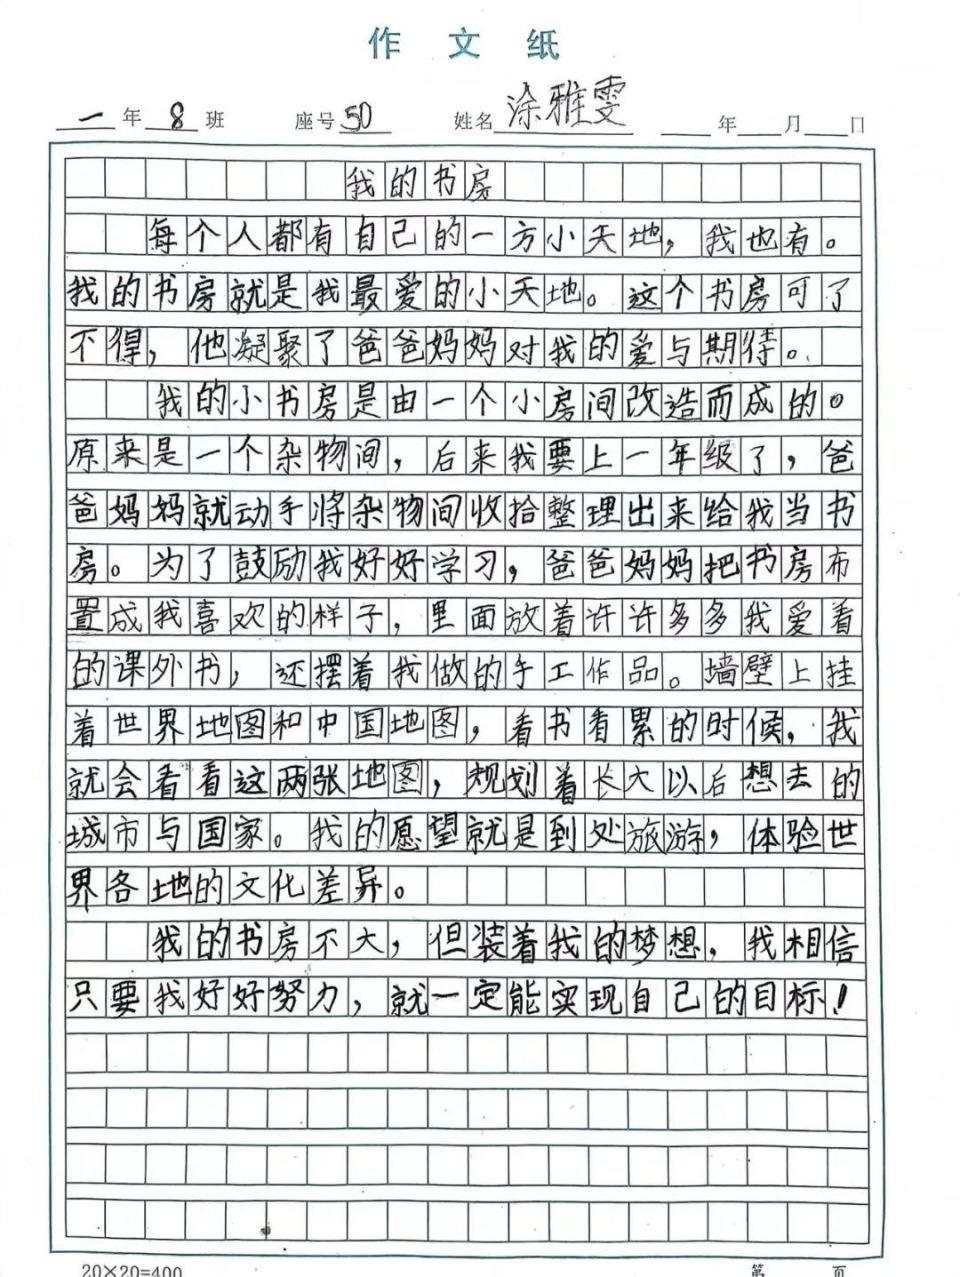 作文纸
一年8班 座号50 姓名涂雅雯 年 月 日
我的书房
每个人都有自己的一方小天地，我也有。
我的书房就是我最爱的小天地。这个书房可了
不得，他凝聚了爸爸妈妈对我的爱与期待。
我的小书房是由一个小房间改造而成的。
原来是一个杂物间，后来我要上一年级了，爸
爸妈妈就动手将杂物间收拾整理出来给我当书
房。为了鼓励我好好学习，爸爸妈妈把书房布
置成我喜欢的样子，里面放着许许多多我爱看
的课外书，还摆着我做的手工作品。墙壁上挂
着世界地图和中国地图，看书看累的时候，我
就会看看这两张地图，规划着长大以后想去的
城市与国家。我的愿望就是到处旅游，体验世
界各地的文化差异。
我的书房不大，但装着我的梦想，我相信
只要我好好努力，就一定能实现自己的目标！
20×20=400 第 页